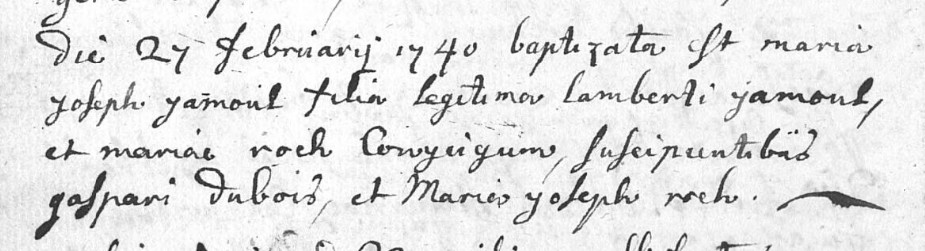 Die 27 februarij 1740 baptizata est maria
yoseph yamoul filia legitima lamberti yamoul,
et mariae roch Conyugum, suscipientibus
gaspari Dubois, et Maria yoseph roch.